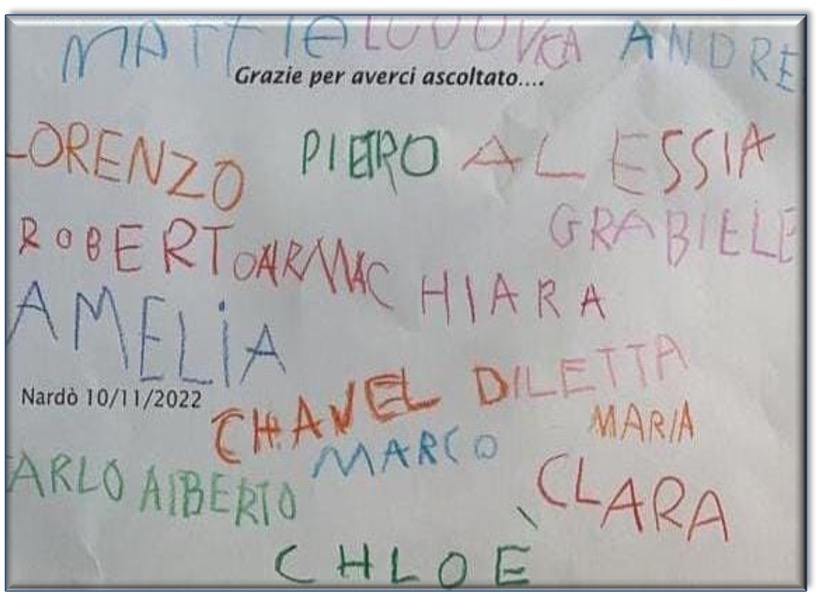 MATTIA LUDOVICA ANDRE
Grazie per averci ascoltato....
LORENZO PIETRO ALESSIA
GRABIELE
ROBERTO CHIARA
AMELIA
DILETTA
Nardò 10/11/2022
CHAVEL
MARIA
MARCO
ARLO AlBERTO
CLARA
CHLOÈ